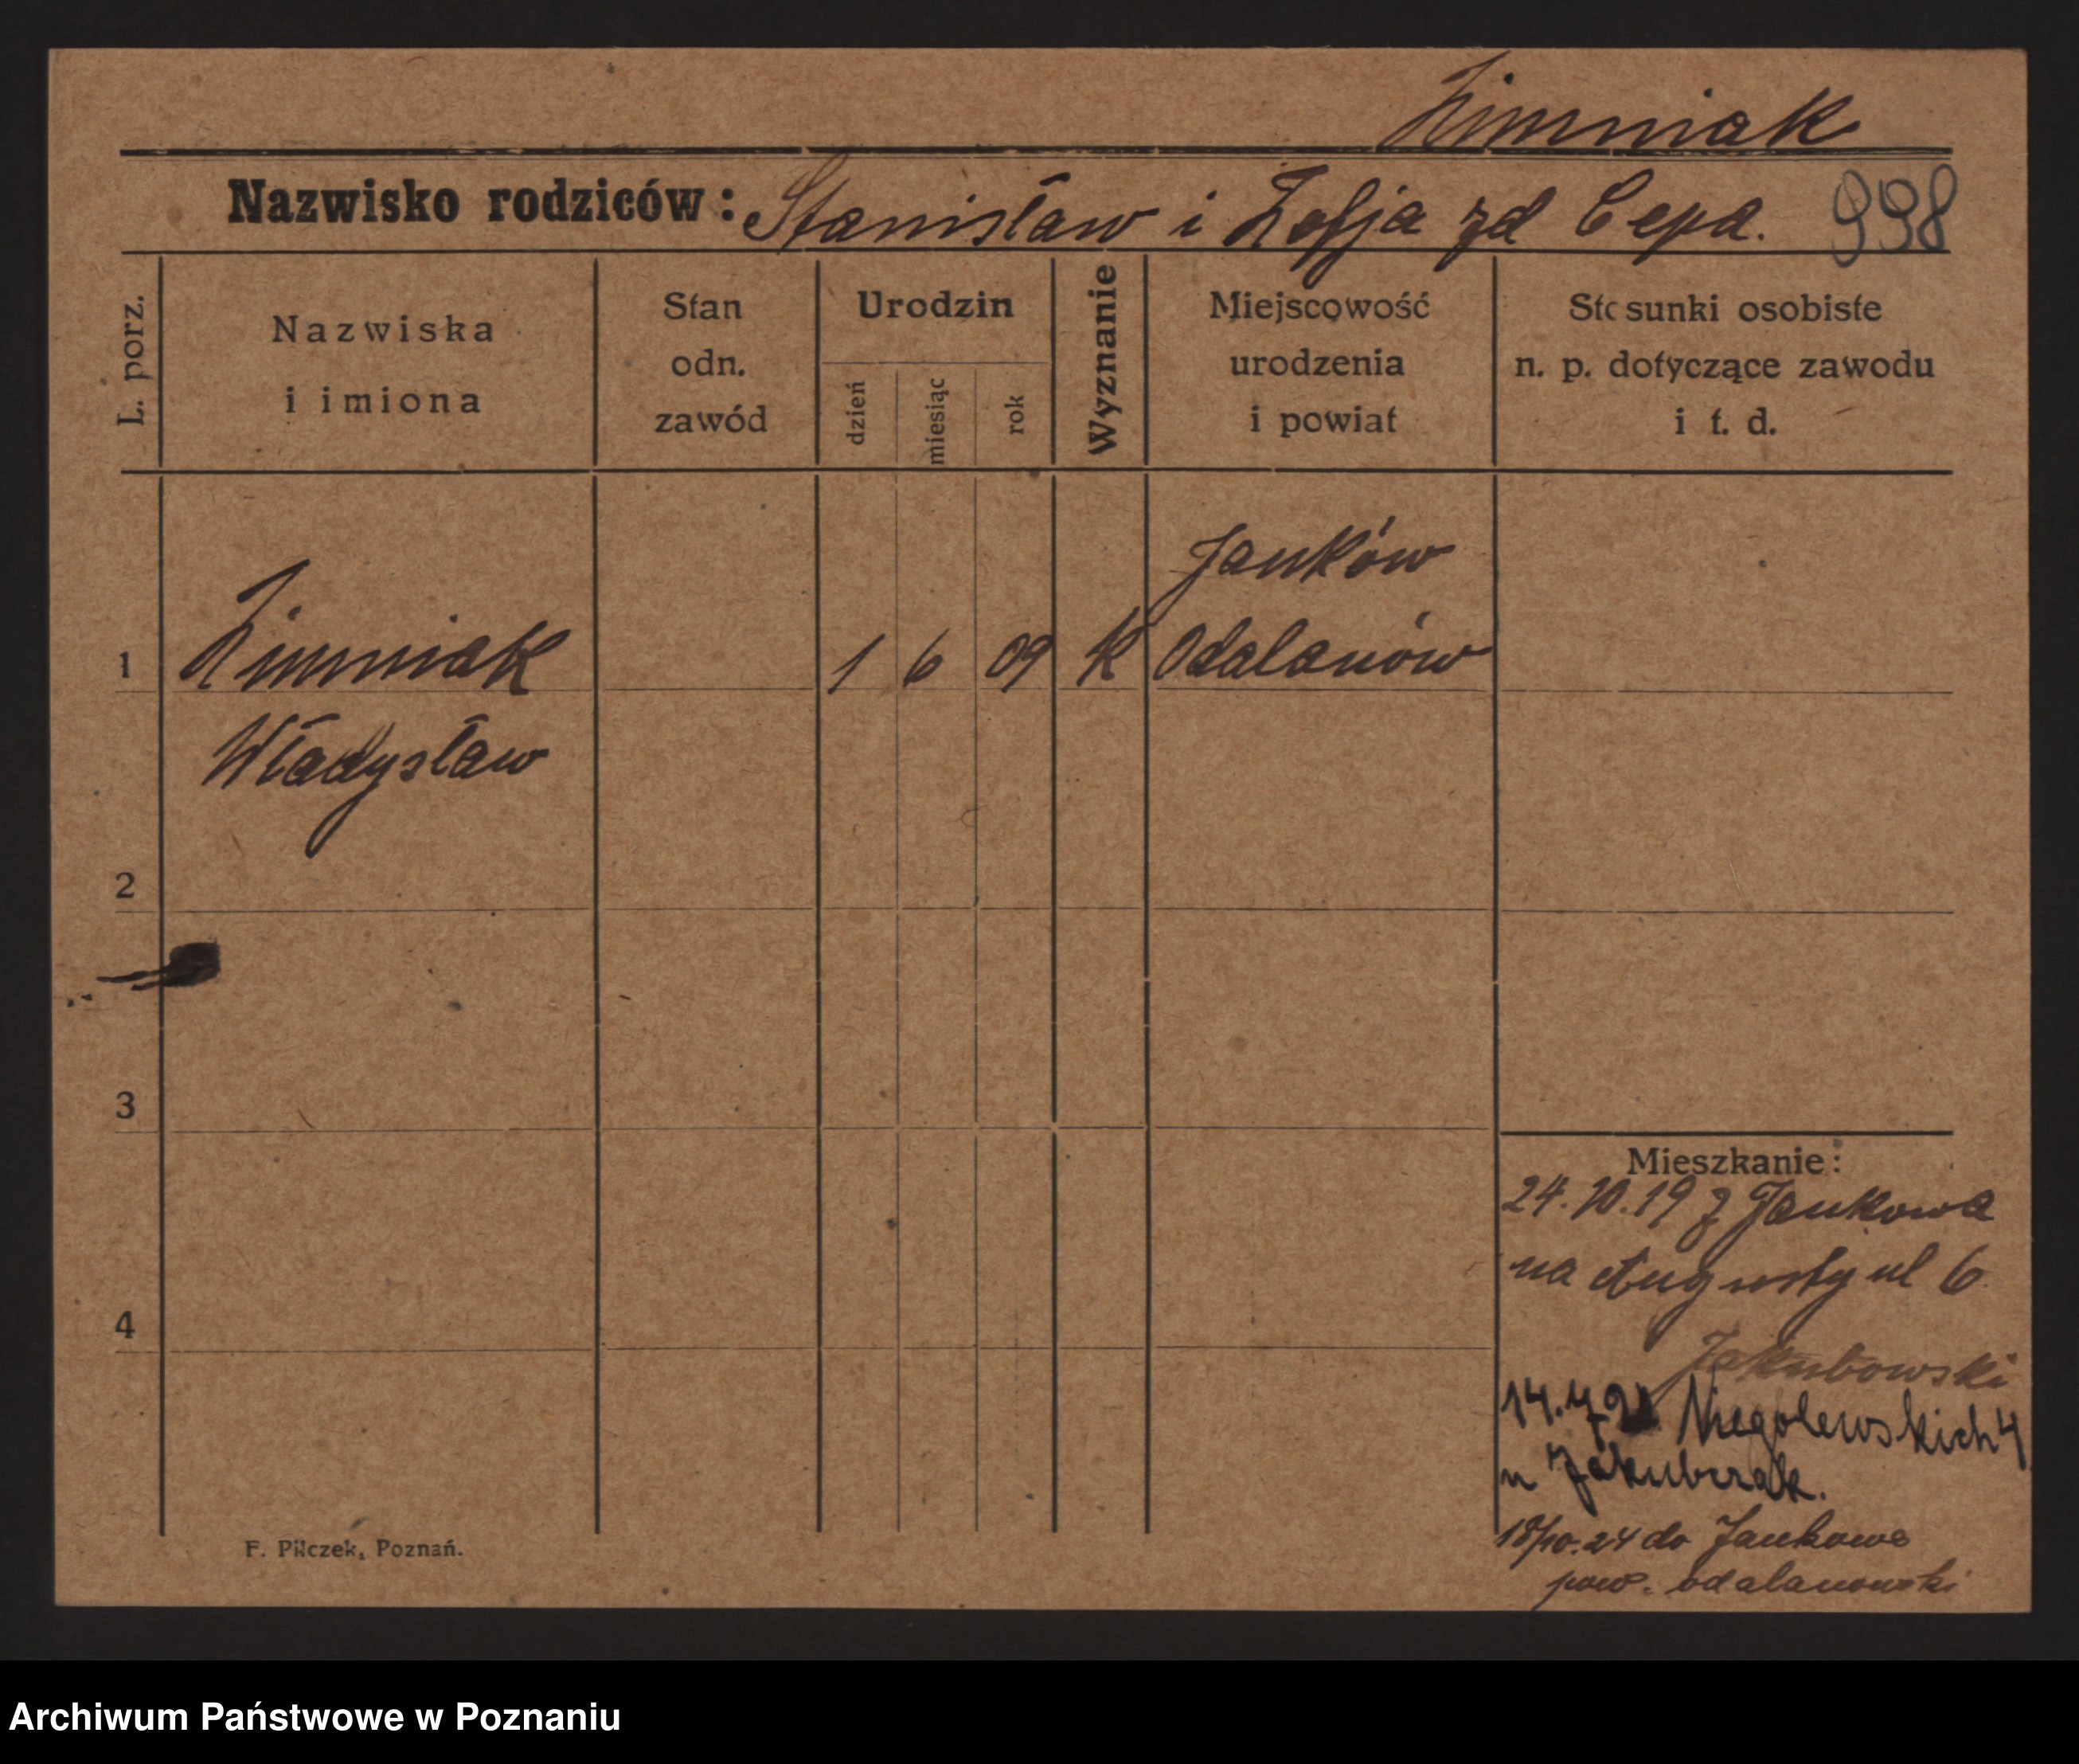 Zimniak
Nazwisko rodziców: Stanisław i Zofja zd Cepa. 998
L. porz.
Nazwiska
i imiona
Stan
odn.
zawód
Urodzin
dzień
miesiąc
rok
Wyznanie
Miejscowość
urodzenia
i powiat
Stosunki osobiste
n. p. dotyczące zawodu
i t. d.
Janków
1 Zimniak 1 6 09 K Odalanów
Władysław
2
3
4
Mieszkanie:
24.10.19 z Jankowa
na Augusty ul 6.
Jakubowski
14.7.21 Niegolewskich 4
u Jakubczak.
18/10.24 do Jankowa
pow. odalanowski
F. Pilczek, Poznań.
Archiwum Państwowe w Poznaniu